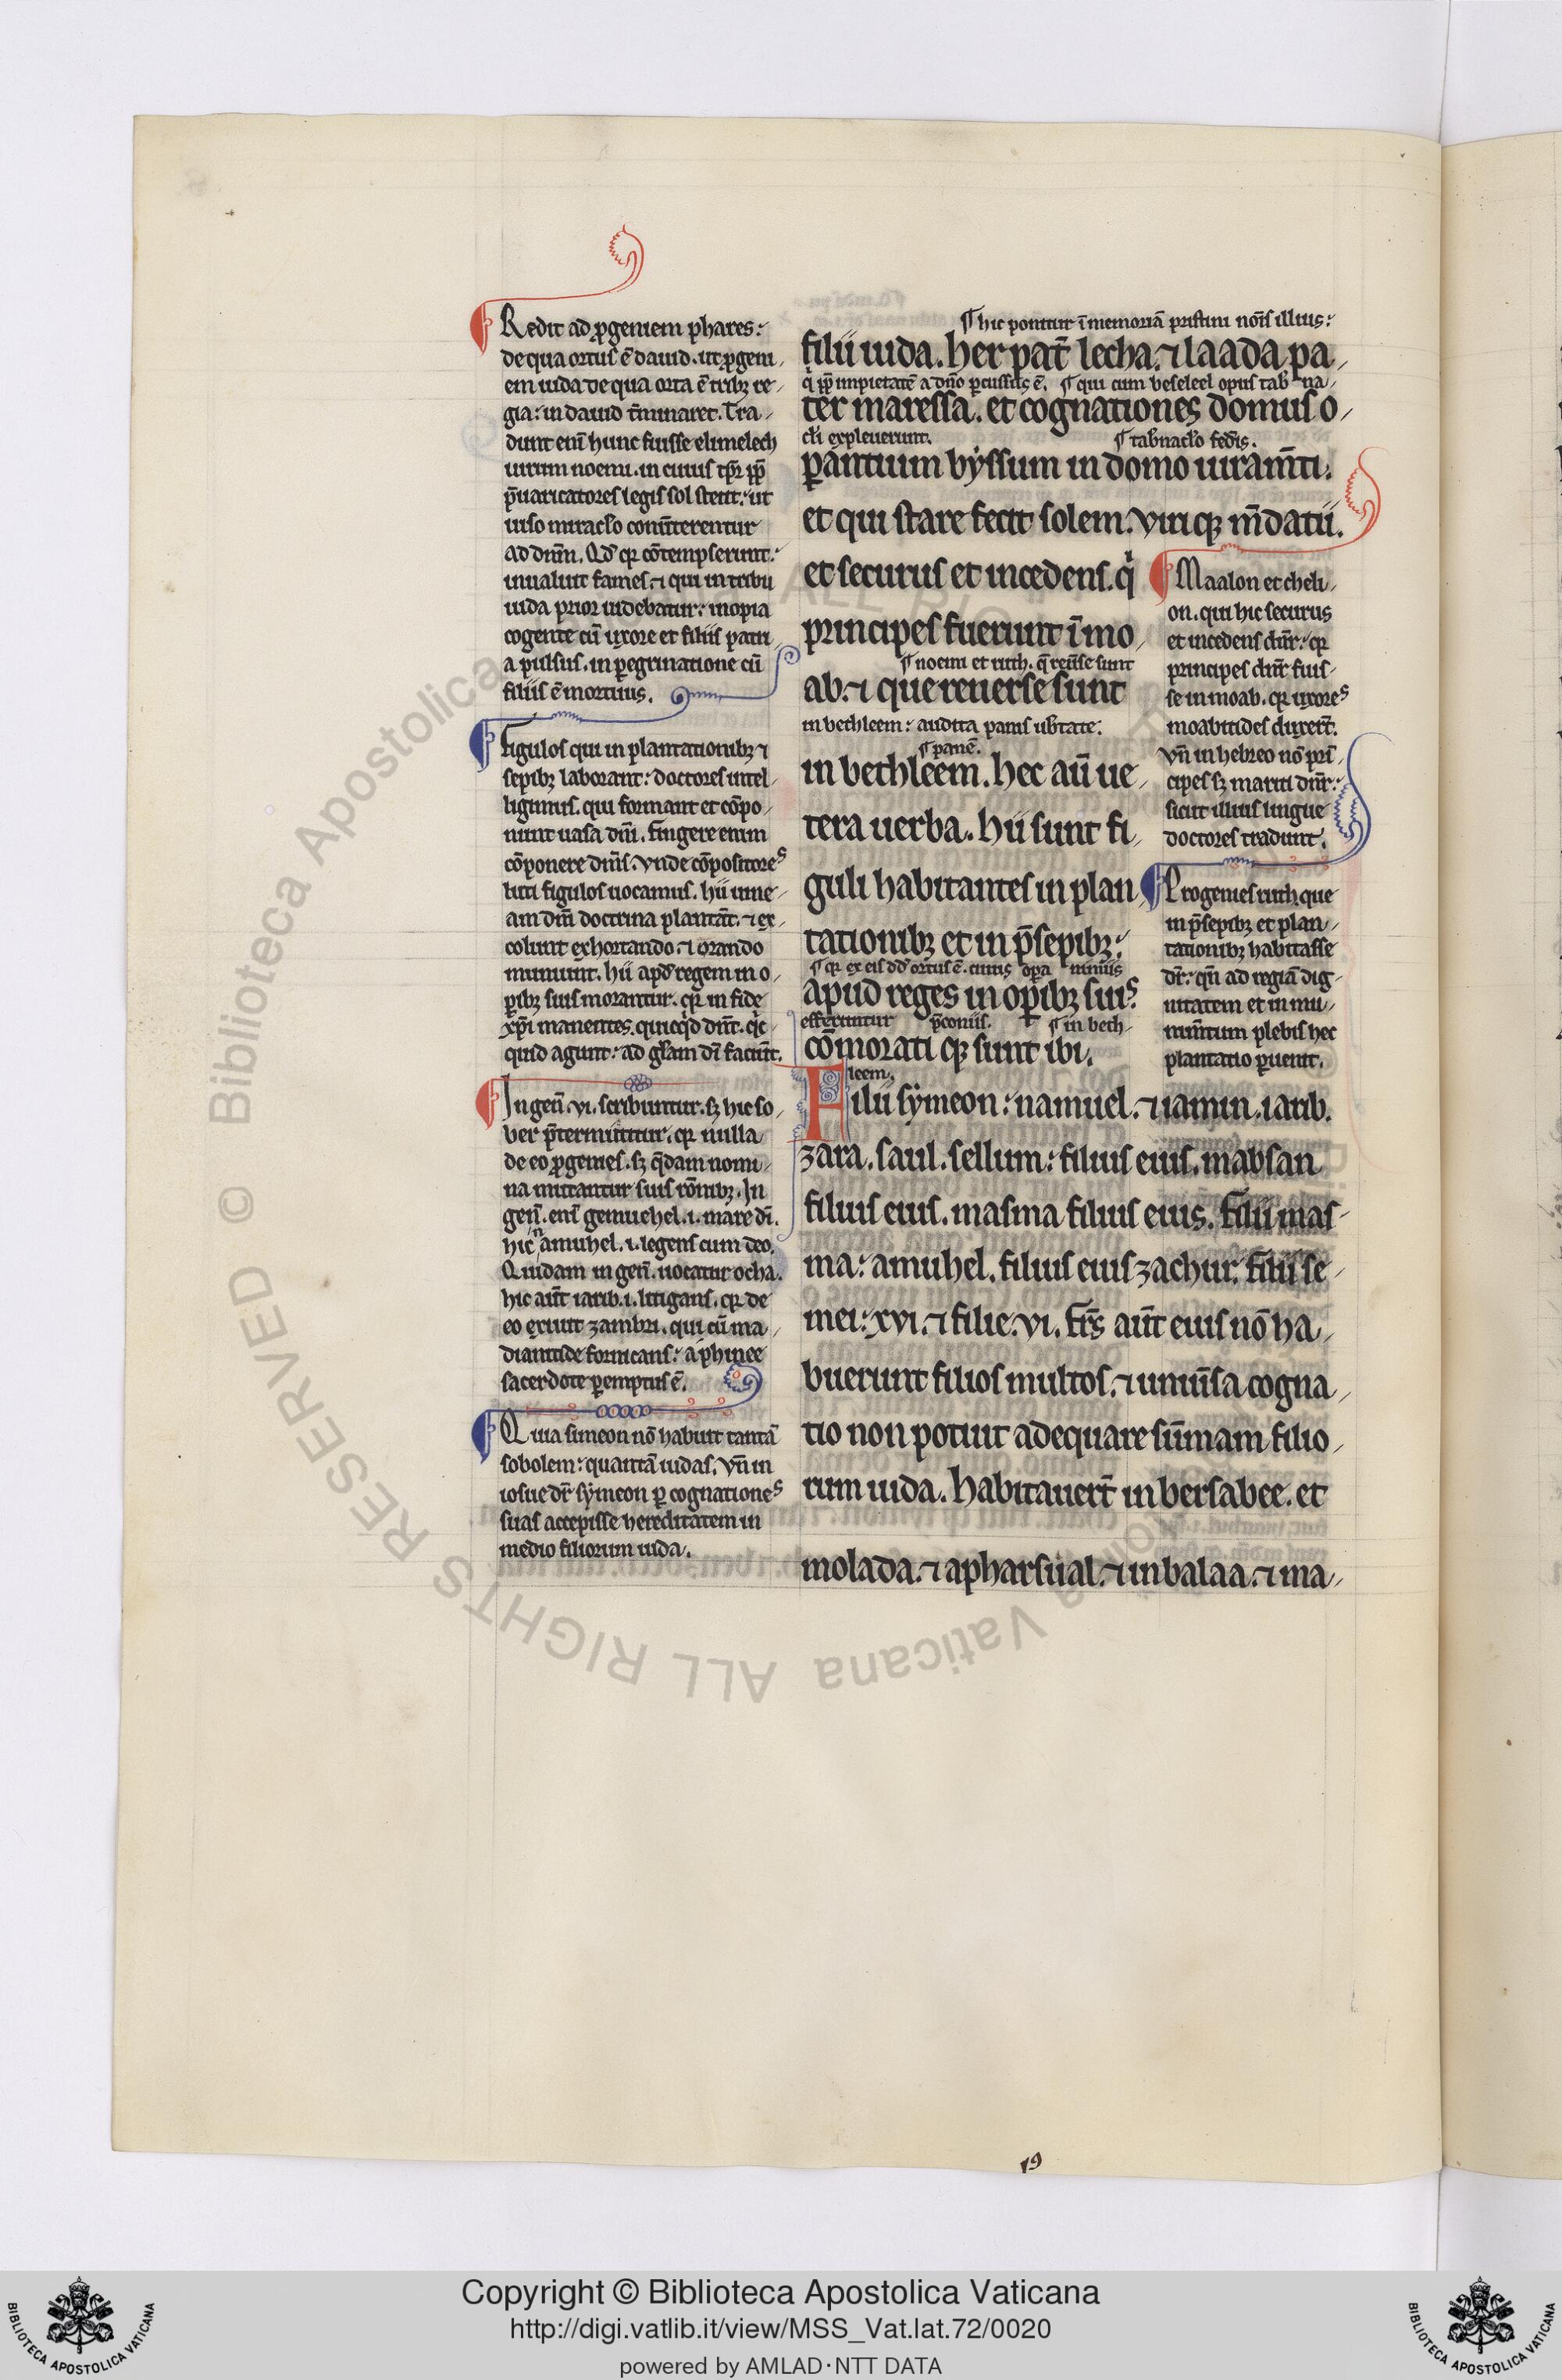 ¶ Redit ad ꝓgeniem phares:
de qua ortus ē dauid. ut ꝓgeni
em iuda de qua orta ē tribꝫ re
gia: in dauid t̄minaret. Tra
dunt eni͂ hunc fuisse elimelech
uirum noemi. in cuius tp̄r ꝓp̄
p̄uaricatores legis sol stetit: ut
uiso miracl̓o conūterentur
ad dnm̄. Qd̓ qꝛ cōtempserunt:
inualuit fames. ⁊ qui in tribu
iuda prior uidebatur: inopia
cogente cū uxore et filiis patri
a pulsus. in ꝑegrinatione cū
filiis ē mortuus.
¶ Figulos qui in plantationibꝫ ⁊
sepibꝫ laborant: doctores intel
ligimus. qui formant et cōpo
nunt uasa dni͂. Fingere enim
cōponere dm̄s. vnde cōpositores
luti figulos uocamus. hii uine
am dni͂ doctrina plantāt. ⁊ ex
colunt exhortando. ⁊ orando
muniunt. hii apd̓ regem in o
ꝑibꝫ suis morantur. qꝛ in fide
xp̄i manentes. quicq̓d dnt̄. q̓c
quid agunt: ad gl̓am dī faciūt.
¶ In gen̄. vi. scribuntur. sꝫ hic so
ber p̄termittitur. qꝛ nulla
de eo ꝓgenies. sꝫ q̄dam nomi
na mutantur suis rōnibꝫ. In
gen̄. eni͂ gemuehel .i. mare dī.
hic namuhel .i. legens cum deo.
Quidam in gen̄. uocatur ocha.
hic aūt iarib .i. litigans. qꝛ de
eo exiuit zambri. qui cū ma
dianitide fornicans: a phinee
sacerdote ꝑemptus ē.
¶ Quia simeon nō habuit tantā
sobolem: quantā iudas. vn̄ in
iosue dr̄ symeon ꝑ cognationes
suas accepisse hereditatem in
medio filiorum iuda.
¶ hic ponitur ī memoriā pristini noīs illius:
filii iuda. her pat̄ lecha. ⁊ laada pa
q̓ ꝓp̄ impietatē a dn̄o ꝑcussus ē. ¶ qui cum beseleel opus tab̓na
ter maressa. et cognationes domus o
cl̓i expleuerunt. ¶ tab̓nacl̓o fed̓is.
ꝑantium byssum in domo iuram̄ti.
et qui stare fecit solem. viri qꝫ m̄datii.
et securus et incedens. q̓
principes fuerunt ī mo
¶ noemi et ruth. q̄ reūse sunt
ab. ⁊ que reuerse sunt
in bethleem: audita panis ub̓tate.
¶ panē.
in bethleem. hec aū ue
tera uerba. hii sunt fi
guli habitantes in plan
tationibꝫ et in p̄sepibꝫ:
¶ qꝛ ex eis dd̓ ortus ē. cuius oꝑa nimiis
apud reges in oꝑibꝫ suis.
efferuntur p̄coniis. ¶ in beth
cōmorati qꝫ sunt ibi.
leem.
Filii symeon: namuel. ⁊ iamin. iarib.
zara. saul. sellum: filius eius. mabsan
filius eius. masma filius eius. Filii mas
ma: amuhel. filius eius zachur. filii se
mei: xvi. ⁊ filie. vi. Frs̄ aūt eius nō ha
buerunt filios multos. ⁊ uniūsa cogna
tio non potuit adequare sūmam filio
rum iuda. habitauert̄ in bersabee. et
molada. ⁊ apharsual. ⁊ in balaa. ⁊ ma
¶ Maalon et cheli
on. qui hic securus
et incedens dn̄r: qꝛ
principes dn̄t fuis
se in moab. qꝛ uxores
moabitides duxert̄.
vn̄ in hebreo nō pri͂
cipes sꝫ mariti dn̄r:
sicut illius lingue
doctores tradunt.
¶ Progenies ruth que
in p̄sepibꝫ et plan
tationibꝫ habitasse
dr̄: qn̄ ad regiā dig
nitatem et in mu
nim̄tum plebis hec
plantatio ꝑuenit.
19
© Biblioteca Apostolica Vaticana ALL RIGHTS RESERVED
Copyright © Biblioteca Apostolica Vaticana
http://digi.vatlib.it/view/MSS_Vat.lat.72/0020
powered by AMLAD·NTT DATA
BIBLIOTECA APOSTOLICA VATICANA
BIBLIOTECA APOSTOLICA VATICANA